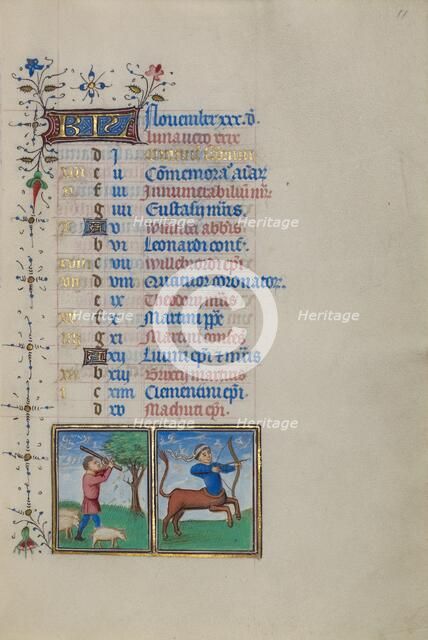 11
KL Nouember xxx. d.
luna uero xxix
d j
xiij e ij Commemora aiar
f iij Innumerabilium mr
g iiij Eustasij mris
v abbis
b vi Leonardi conf.
c vij Willebrordi epi
d viij Quatuor coronator
e ix Theodori mris
f x Martini pp
g xi Martini confes
xij Lixini epi t mris
b xiij Briccij
c xiiij Clementini epi
d xv Machuti epi.
Heritage Heritage
Heritage Heritage
Heritage